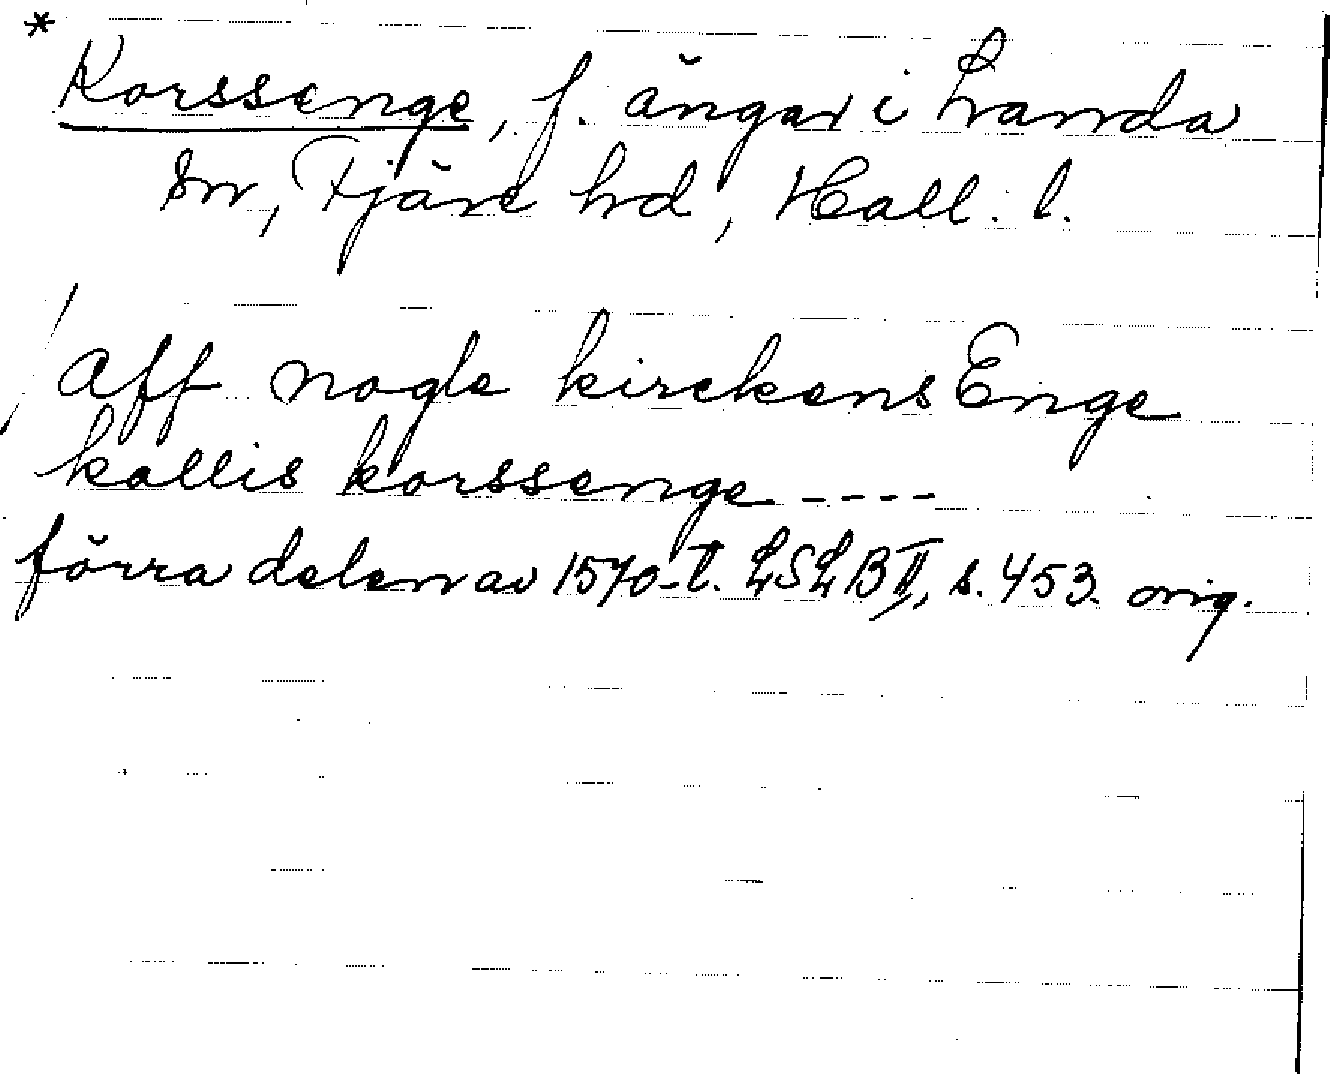 *
Korssenge, f. ängar i Landa
sn, Fjäre hd, Hall. l.
Aff nogle kirckens Enge
kallis korssenge ----
förra delen av 1570-t. LSLB II, s. 453. orig.